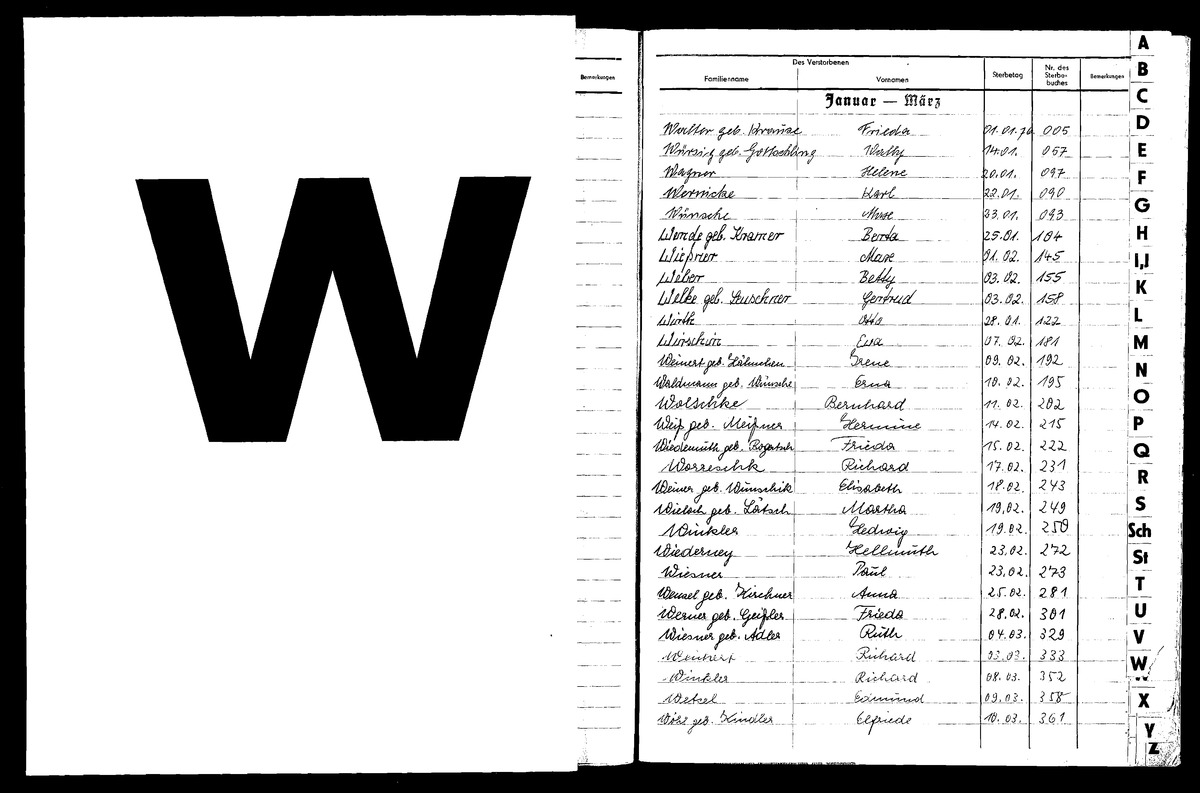 W
Bemerkungen
Des Verstorbenen
Familienname Vornamen Sterbetag Nr. des Sterbe-buches Bemerkungen
Januar — März
Walter geb. Krause Frieda 01.01.76 005
Würsig geb. Gottschling Wally 14.01. 057
Wagner Helene 20.01. 097
Wernicke Karl 22.01. 090
Wünsche 23.01. 093
Wende geb. Kramer Berta 25.01. 104
Max 01.02. 145
Weber Betty 03.02. 155
Welke geb. Leuschner Gertrud 03.02. 158
Wirth Otto 28.01. 122
Eva 07.02. 181
Weinert geb. Hähnchen Irene 09.02. 192
Waldmann geb. Wünsche Erna 10.02. 195
Wolschke Bernhard 11.02. 202
Weiß geb. Meißner Hermine 14.02. 215
Wiedemuth geb. Frieda 15.02. 222
Worreschk Richard 17.02. 231
Weiner geb. Wunschik Elisabeth 18.02. 243
geb. Lätsch Martha 19.02. 249
Winkler Hedwig 19.02. 250
Wiederney Hellmuth 23.02. 272
Wiesner Paul 23.02. 273
Wenzel geb. Kirchner Anna 25.02. 281
Werner geb. Geißler Frieda 28.02. 301
Wiesner geb. Adler Ruth 04.03. 329
Weichert Richard 03.03. 333
Winkler Richard 08.03. 352
Wetzel Edmund 09.03. 358
geb. Kindler Elfriede 10.03. 361
A
B
C
D
E
F
G
H
I,J
K
L
M
N
O
P
Q
R
S
Sch
St
T
U
V
W
X
Y
Z